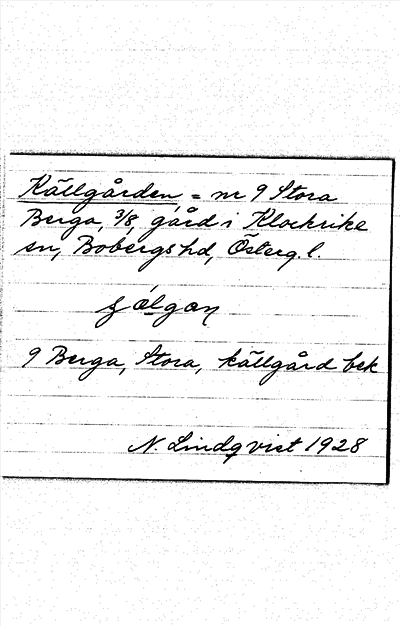 Källgården = nr 9 Stora
Berga, 3/8, gård i Klockrike
sn, Bobergs hd, Österg. l.
9 Berga, Stora, källgård bek
N. Lindqvist 1928